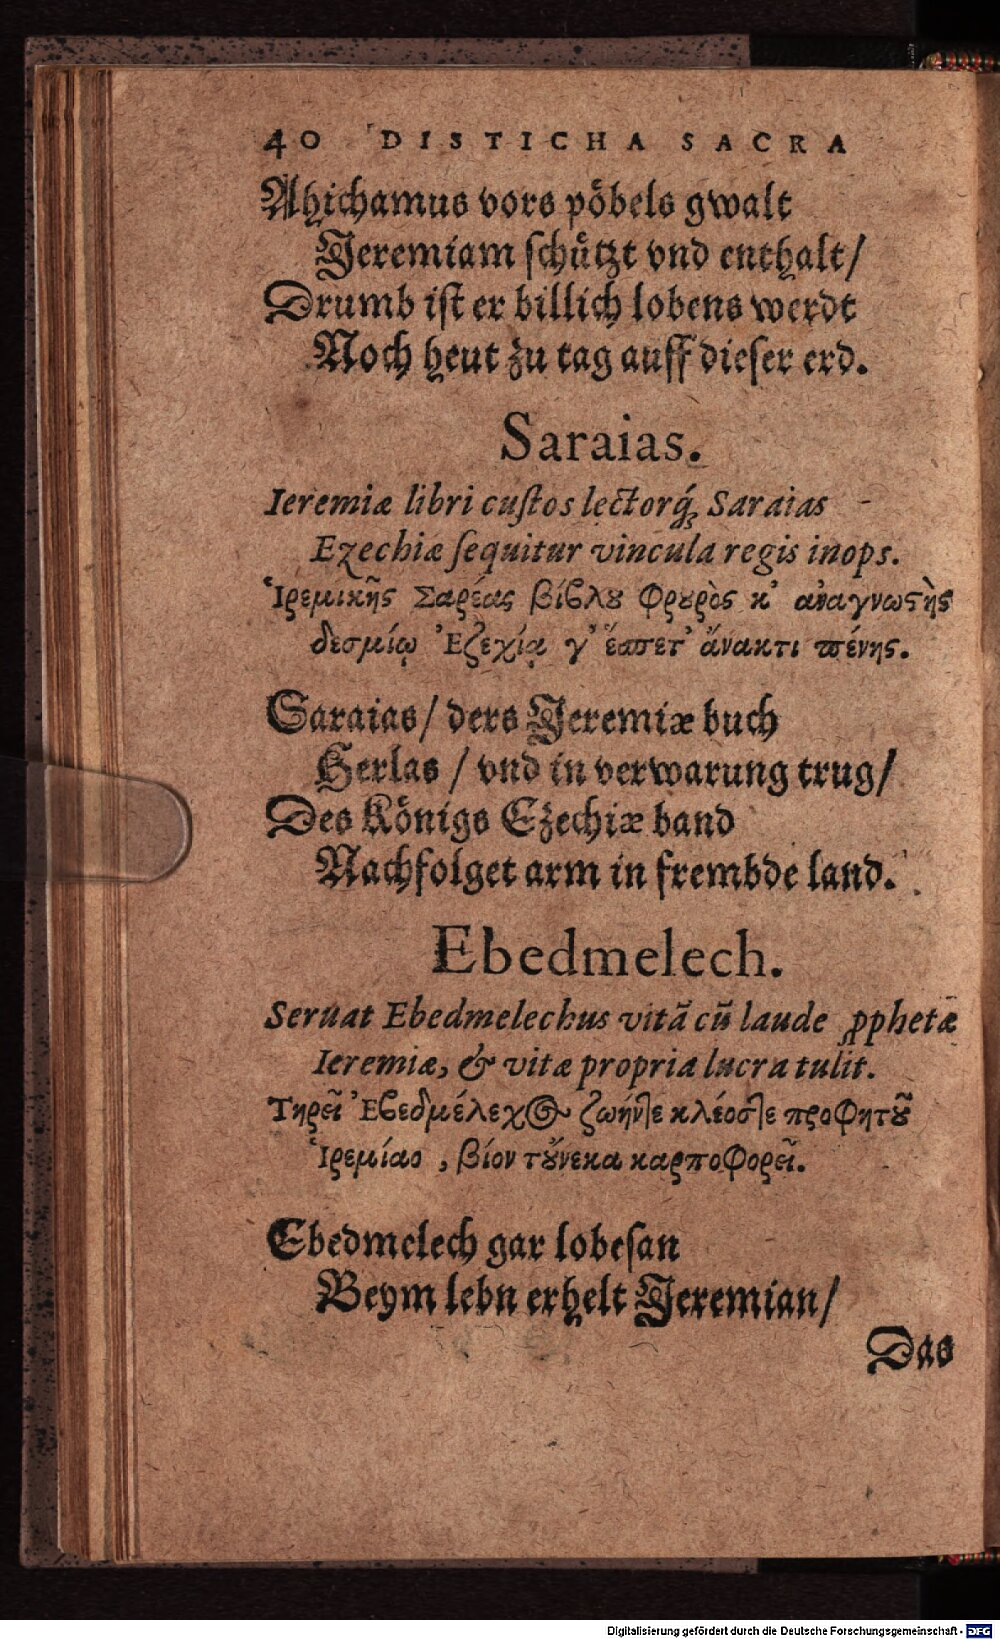 40 DISTICHA SACRA
Ahichamus vors pöbels gwalt
Jeremiam schützt vnd enthalt/
Drumb ist er billich lobens werdt
Noch heut zu tag auff dieser erd.
Saraias.
Ieremiæ libri custos lectorq́; Saraias
Ezechiæ sequitur vincula regis inops.
Ἰρεμικῆς Σαρέας βίβλου φρουρὸς κ' ἀναγνωστὴς
δεσμίῳ Ἐζεχίᾳ γ' ἕσπετ' ἄνακτι πένης.
Saraias/ ders Jeremiæ buch
Herlas / vnd in verwarung trug/
Des Königs Ezechiæ band
Nachfolget arm in frembde land.
Ebedmelech.
Seruat Ebedmelechus vitā cū laude ꝓphetæ
Ieremiæ, & vitæ propria lucra tulit.
Τηρεῖ Ἐβεδμέλεχος ζωήν τε κλέος τε προφητοῦ
Ἰρεμίαο, βίον τοὔνεκα καρποφορεῖ.
Ebedmelech gar lobesan
Beym lebn erhelt Jeremian/
Das
Digitalisierung gefördert durch die Deutsche Forschungsgemeinschaft - DFG